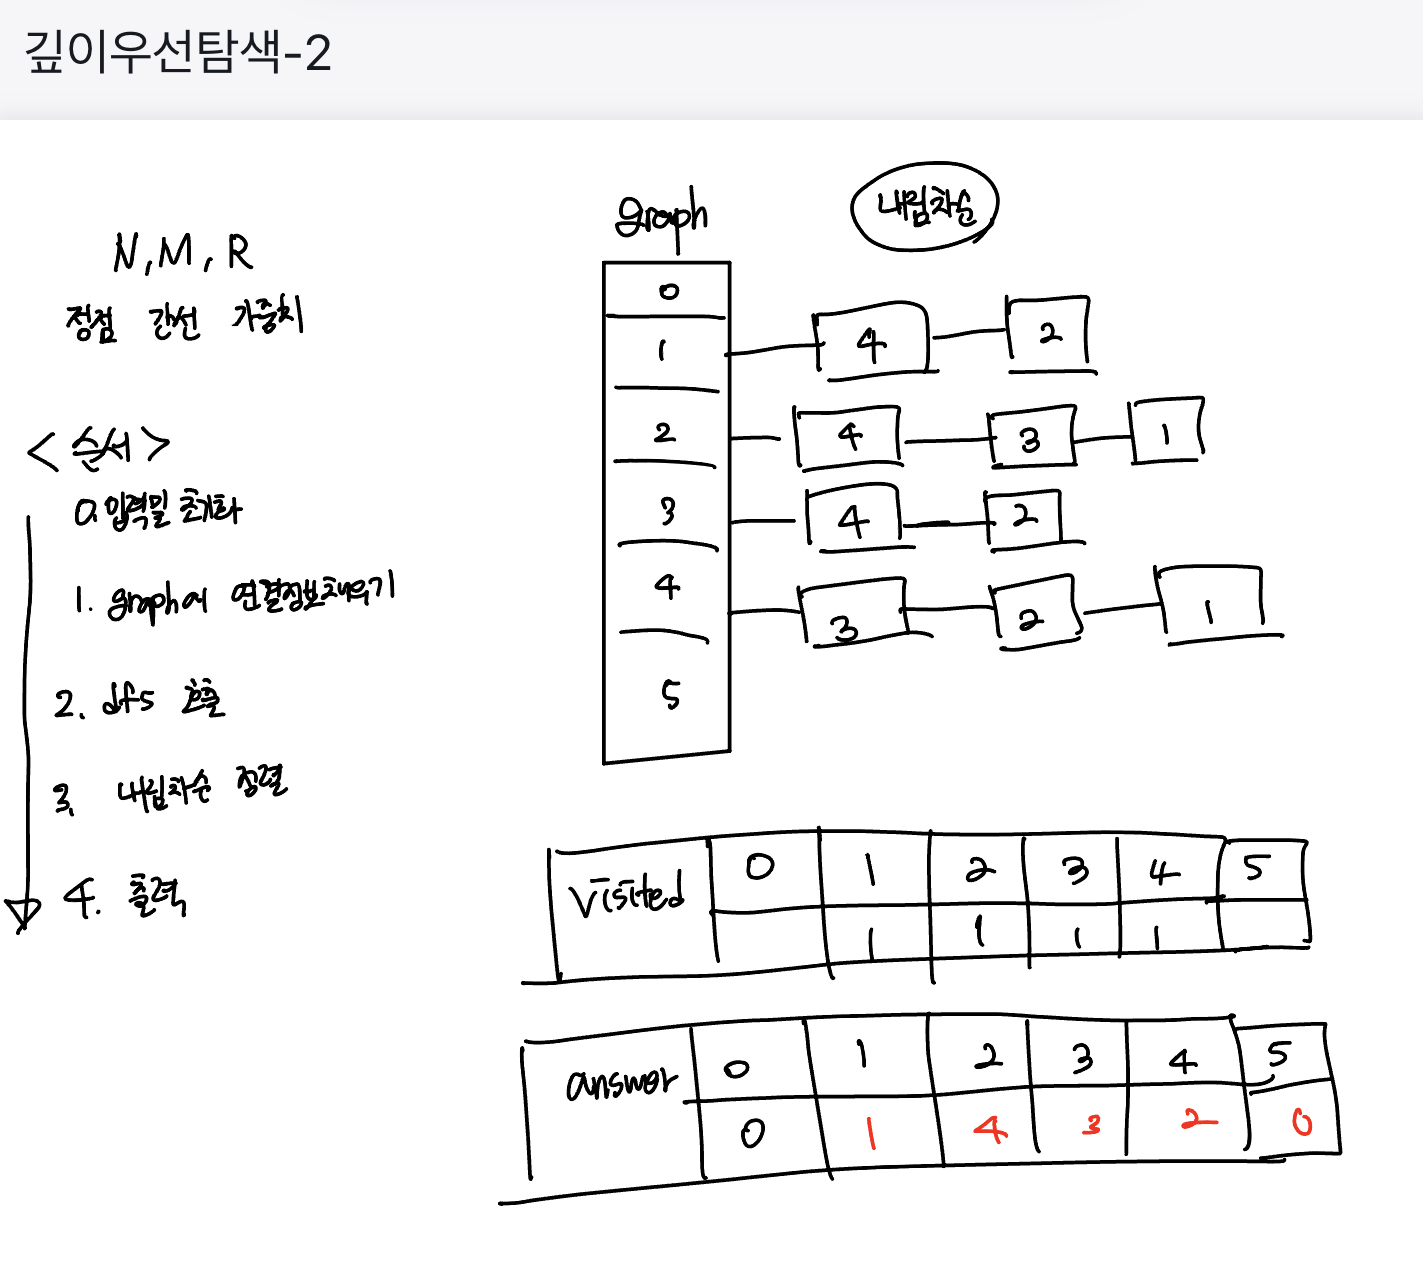 깊이우선탐색-2
N, M, R
정점 간선 가중치
<순서>
0. 입력및 초기화
1. graph에 연결정보채우기
2. dfs 호출
3. 내림차순 정렬
4. 출력
graph
내림차순
0
1 4 2
2 4 3 1
3 4 2
4 3 2 1
5
visited 0 1 2 3 4 5
1 1 1 1
answer 0 1 2 3 4 5
0 1 4 3 2 0